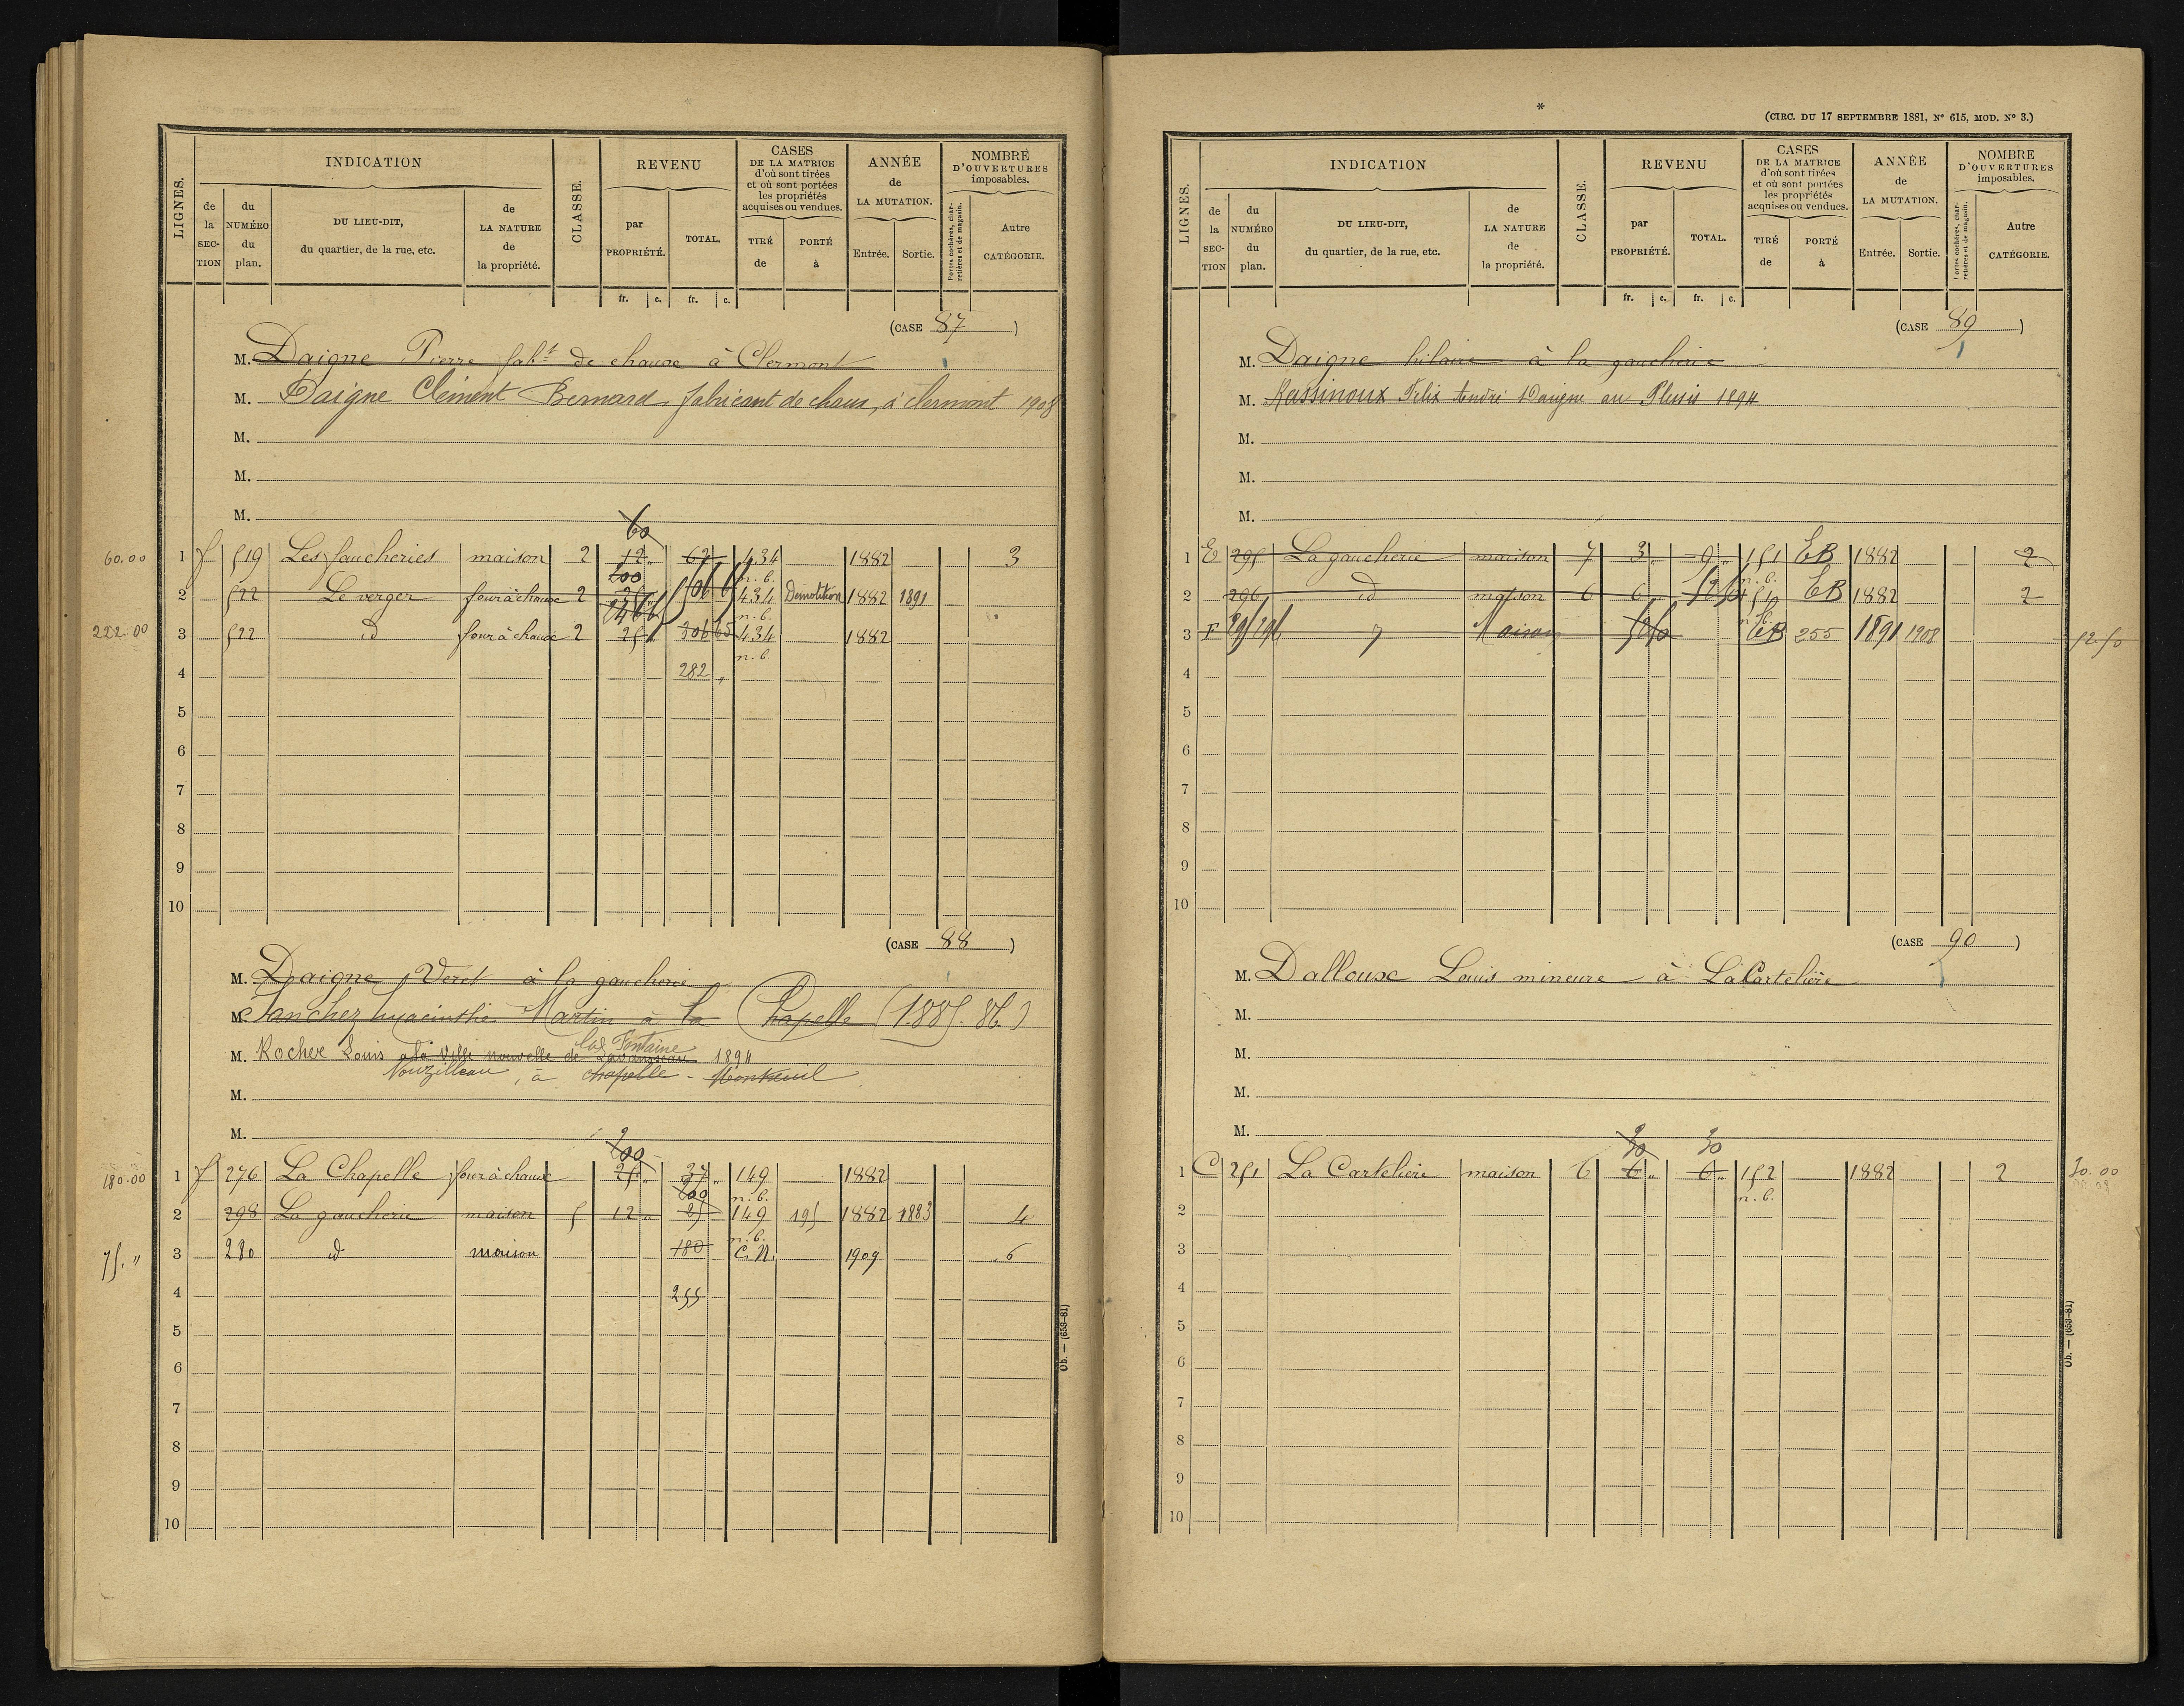 LIGNES.
INDICATION
de la SEC-TION
du NUMÉRO du plan.
DU LIEU-DIT, du quartier, de la rue, etc.
de LA NATURE de la propriété.
CLASSE.
REVENU
par PROPRIÉTÉ.
TOTAL.
fr. c. fr. c.
CASES DE LA MATRICE d'où sont tirées et où sont portées les propriétés acquises ou vendues.
TIRÉ de
PORTÉ à
ANNÉE de LA MUTATION.
Entrée. Sortie.
NOMBRE D'OUVERTURES imposables.
Portes cochères, charretières et de magasin.
Autre CATÉGORIE.
(CASE 87)
M. Daigne Pierre fab.t de chaux à Clermont
M. Daigne Clément Bernard fabricant de chaux, à clermont 1908
M.
M.
M.
60
60.00 1 f 519 Les faucheries maison 2 12 „ 62 434 1882 3
200 n. b.
2 522 Le verger four à chaux 2 434 Démolition 1882 1891
n. b.
222.00 3 522 id four à chaux 2 25 306 65 434 1882
n. b.
4 282 „
5
6
7
8
9
10
(CASE 88)
M. Daigne Veret à la gaucherie
M. Sanchez hyacinthe Martin à la Chapelle (1885.86.)
Fontaine
M. Rocher Louis à la Ville nouvelle de 1894
Nouzilleau, à chapelle - Montreuil
M.
M.
200
180.00 1 f 276 La Chapelle four à chaux 25 „ 37 „ 149 1882
200 n. b.
2 298 La gaucherie maison 5 12 „ 25 149 195 1882 1883 4
n. b.
75. " 3 280 id maison 180 C.N. 1909 6
4 255
5
6
7
8
9
10
Ob. — (653-81)
*
(CIRC. DU 17 SEPTEMBRE 1881, N° 615, MOD. N° 3.)
LIGNES.
INDICATION
de la SEC-TION
du NUMÉRO du plan.
DU LIEU-DIT, du quartier, de la rue, etc.
de LA NATURE de la propriété.
CLASSE.
REVENU
par PROPRIÉTÉ.
TOTAL.
fr. c. fr. c.
CASES DE LA MATRICE d'où sont tirées et où sont portées les propriétés acquises ou vendues.
TIRÉ de
PORTÉ à
ANNÉE de LA MUTATION.
Entrée. Sortie.
NOMBRE D'OUVERTURES imposables.
Portes cochères, charretières et de magasin.
Autre CATÉGORIE.
(CASE 89)
M. Daigne hilaire à la gaucherie
M. Massinoux Félix André Daigne au Plessis 1894
M.
M.
M.
1 E 295 La gaucherie maison 7 3 „ 9 „ 151 EB 1882 2
n. b.
2 296 id maison 6 6 „ 151 EB 1882 2
n. b.
3 F 295 296 Maison EB 255 1891 1908 52.50
4
5
6
7
8
9
10
(CASE 90)
M. Dalloux Louis mineure à La Cartelière
M.
M.
M.
M.
30 30
1 C 251 La Cartelière maison 6 6 „ 6 „ 152 1882 2 30.00
n. b.
2
3
4
5
6
7
8
9
10
Ob. — (653-81)